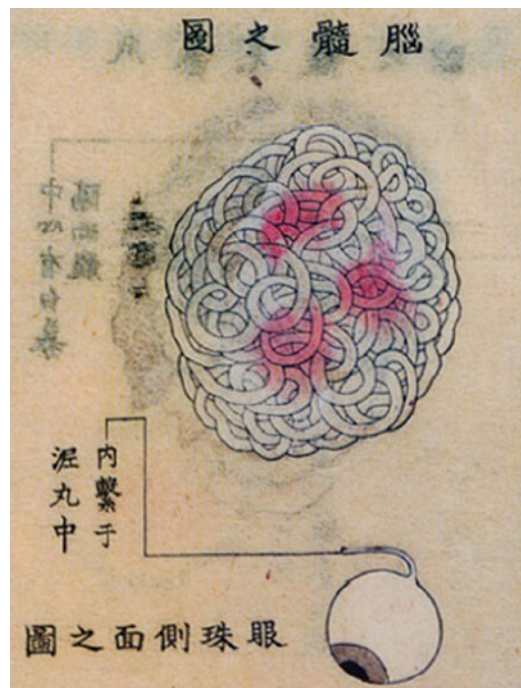 腦髓之圖
內繫于
泥丸中
眼珠側面之圖